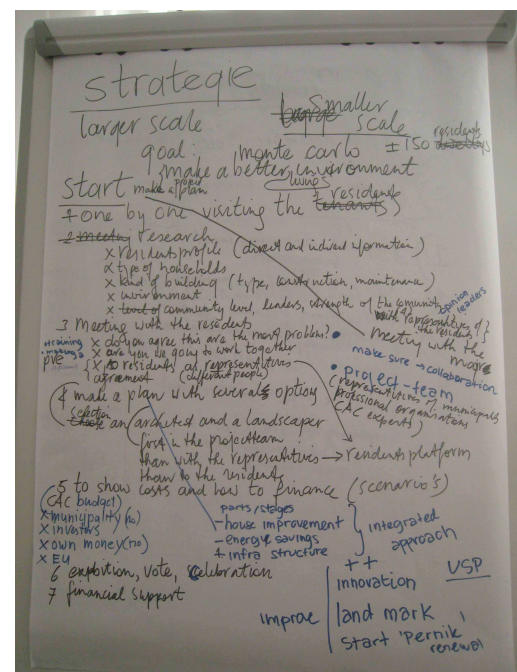 strategie
larger scale
large Smaller scale
± 150 residents
goal: monte carlo
make a better environment
living
Start make a project plan
1 one by one visiting the tenants residents
2 meeting research
x residentsprofile (direct and indirect information)
x type of households
x kind of building (type, construction, maintenance)
x invironment
x community level, leaders, strength of the comunity
opinion leaders
with representatives of the residents
3 Meeting with the residents
x do you agree this are the most problems?
x are you we going to work together
x 10 residents as representatives
agreement (different people)
+training
PVE
meeting with the mayor
make sure → collaboration
• Project-team
(representatives of municipality
professional organisations
CAC experts)
4 make a plan with severals option
selection an architect and a landscaper
first in the projectteam
than with the representatives → residents platform
than to the residents
5 to show costs and how to finance (scenario's)
(CAC budget)
x municipality (no)
x investors
x own money (no)
x EU
parts/stages
- house improvement
- energie savings
+ infra structure
integrated approach
6 exposition, vote, celebration
7 financial support
++
innovation
USP
improve
land mark
start 'Pernik' renewal